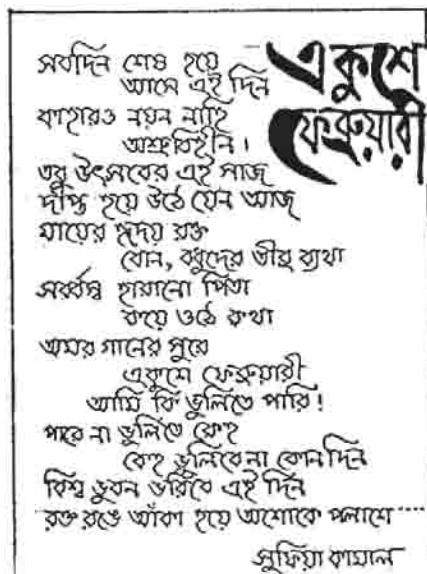 একুশে
ফেব্রুয়ারী
সবদিন শেষ হয়ে
আসে এই দিন
কাহারও নয়ন নাহি
অশ্রুবিহীন।
তবু উৎসবের এই সাজ
দীপ্ত হয়ে উঠে যেন আজ
মায়ের হৃদয় রক্ত
বোন, বধুদের তীব্র ব্যথা
সর্ব্বস্ব হারানো পিতা
কয়ে ওঠে কথা
অমর গানের সুরে
একুশে ফেব্রুয়ারী
আমি কি ভুলিতে পারি!
পারে না ভুলিতে কেহ
কেহ ভুলিবে না কোন দিন
বিশ্ব ভুবন ভরিবে এই দিন
রক্ত রঙে আঁকা হয়ে অশোকে পলাশে
সুফিয়া কামাল